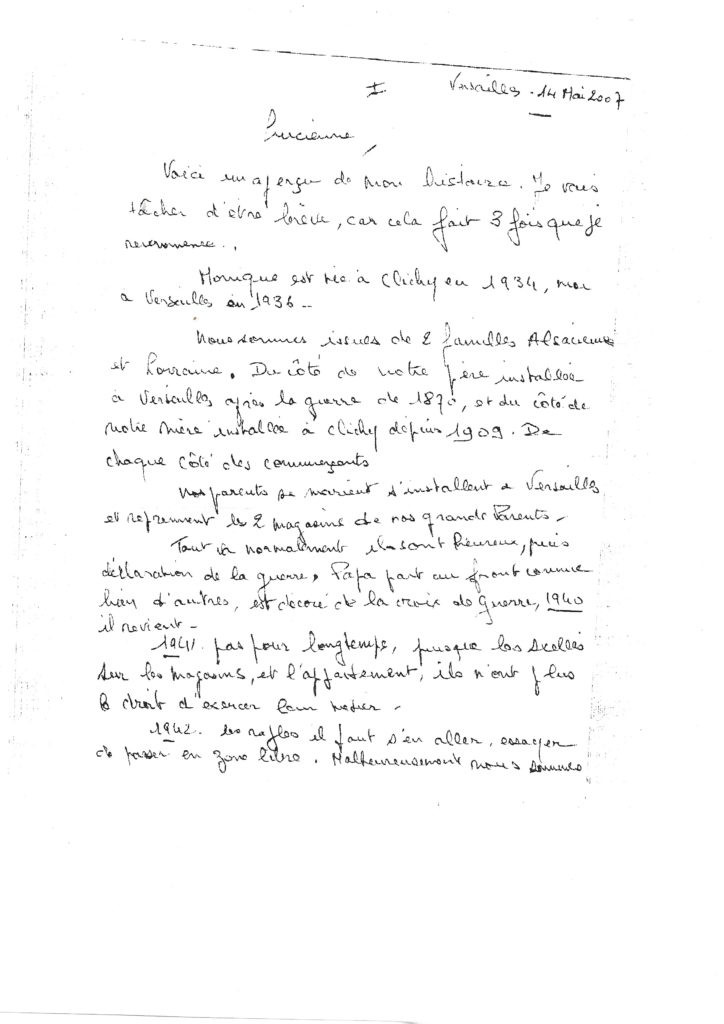 I Versailles . 14 Mai 2007
Lucienne
Voici un aperçu de mon histoire. Je vais
tâcher d'être brève, car cela fait 3 fois que je
recommence..
Monique est née à Clichy en 1934, moi
a Versailles en 1936 -
Nous sommes issues de 2 familles Alsacienne
et Lorraine. Du côté de notre père installée
à Versailles après la guerre de 1870, et du côté de
notre mère installée à Clichy depuis 1909. De
chaque côté des commerçants
Nos parents se marient s'installent a Versailles
et reprennent les 2 magasins de nos grands Parents -
Tout va normalement ils sont heureux, puis
déclaration de la guerre. Papa part au front comme
bien d'autres, est décoré de la croix de Guerre, 1940
il revient -
1941 pas pour longtemps, puisque les scellés
sur les magasins, et l'appartement, ils n'ont plus
le droit d'exercer leur métier -
1942. les rafles il faut s'en aller, essayer
de passer en zone libre. Malheureusement nous sommes